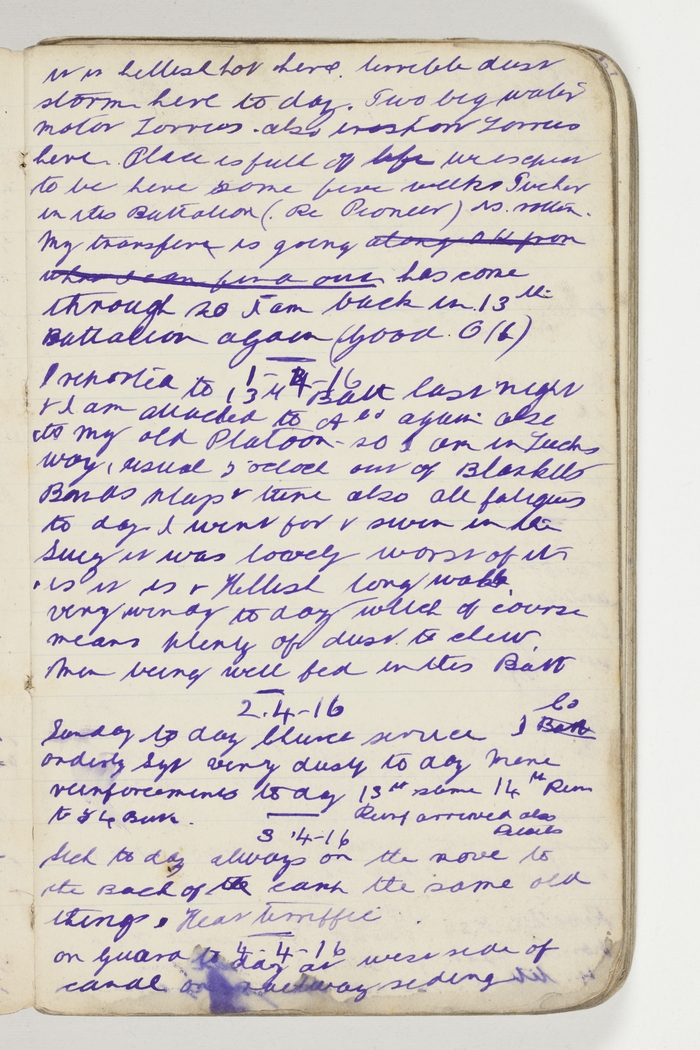 it is hellish hot here. terrible dust
storm here to day. Two big water
motor Lorries. also Lorries
here. Place is full of life we expect
to be here some five weeks Tucker
in this Battalion (. Re Pioneer) is rotten.
My transfere is going along all from
what I can find out has come
through so I am back in 13th
Battalion again (good. O/6)
1-4-16
I reported to 13th Batt last night
& I am attached to A Co again also
to my old Platoon - so I am in Lucks
way, usual 5 oclock out of Blankets
Bands play & tune also all fatigues
to day I went for a swim in the
Suez it was lovely worst of it
is it is a Hellish long walk
very windy to day which of course
means plenty of dust to chew.
Men being well fed in this Batt
2.4-16
Sunday to day Church service I Batt Co
orderly Sgt very dusty to day more
reinforcements to day 13th some 14th Rein
to 54 Batt. Reinf arrived also
Details
3-4-16
Sick to day always on the move to
the Back of the camp the same old
things. Heat terriffic
4-4-16
on Guard to day at west side of
canal on railway siding